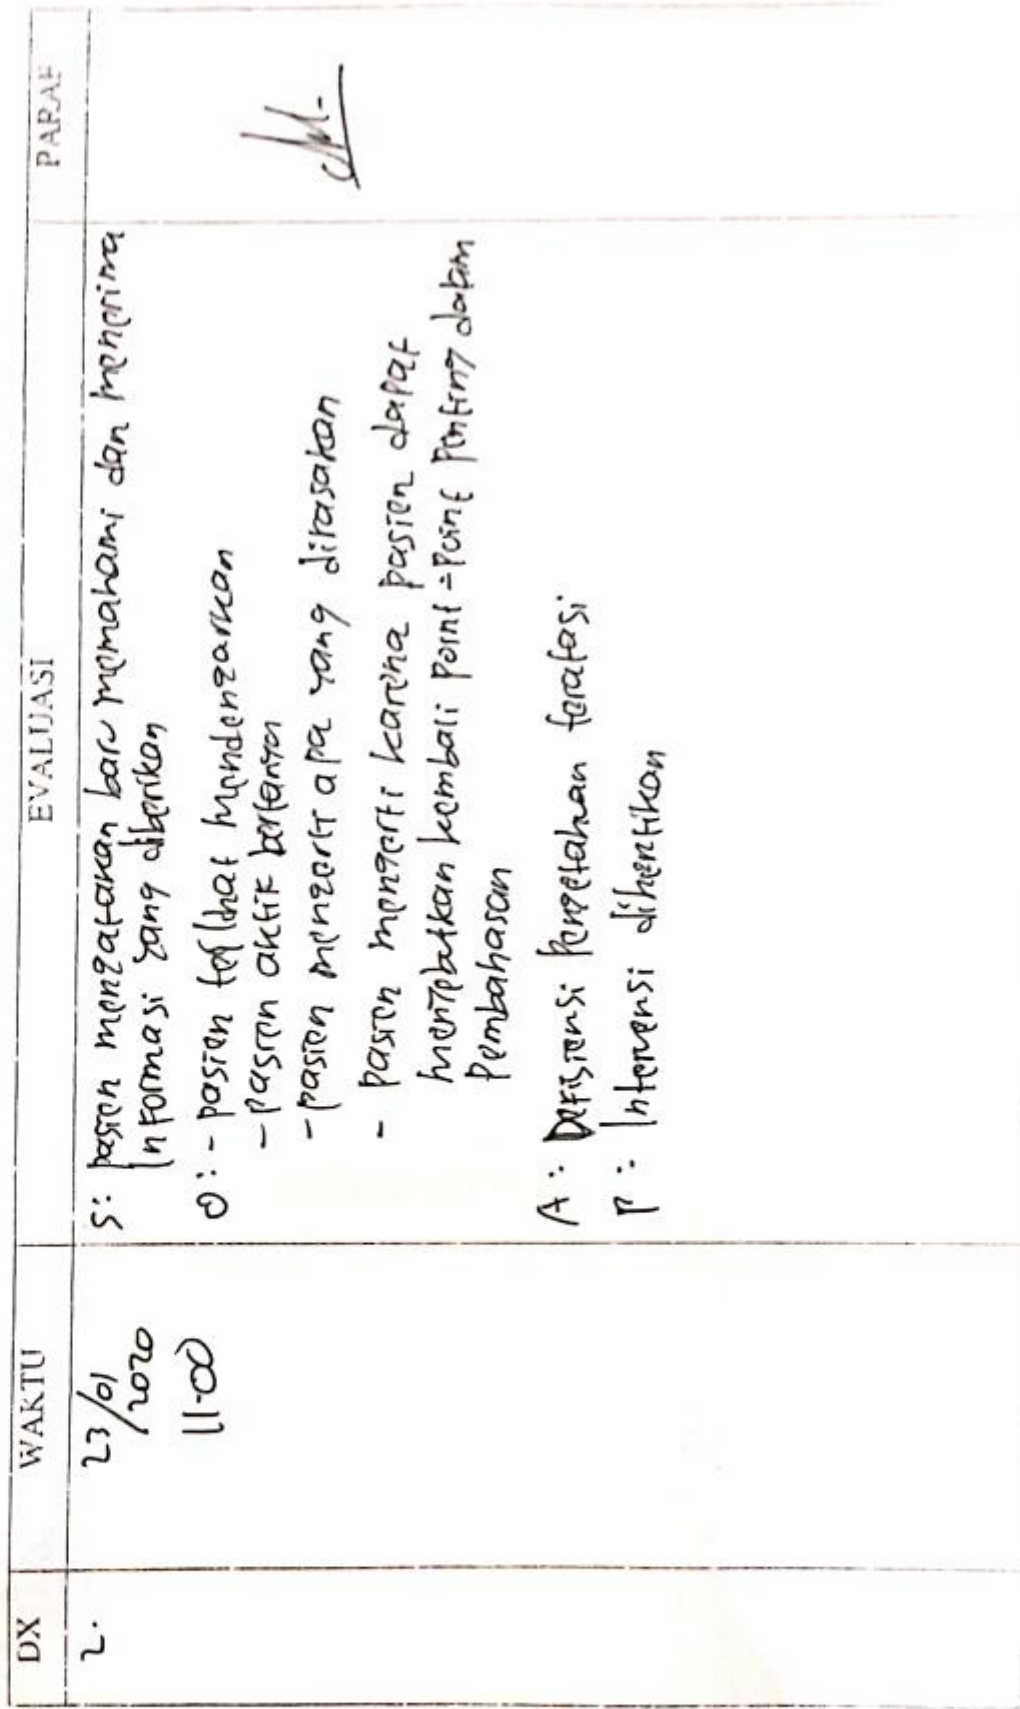 DX WAKTU EVALUASI PARAF
2. 23/01/2020 S: pasien mengatakan baru memahami dan menerima
informasi yang diberikan
11.00 O: - pasien terlihat mendengarkan
- pasien aktif bertanya
- pasien mengerti apa yang dirasakan
- pasien mengerti karena pasien dapat
menyebutkan kembali point-point penting dalam
pembahasan
A: Defisiensi Pengetahuan teratasi
P: Intervensi dihentikan